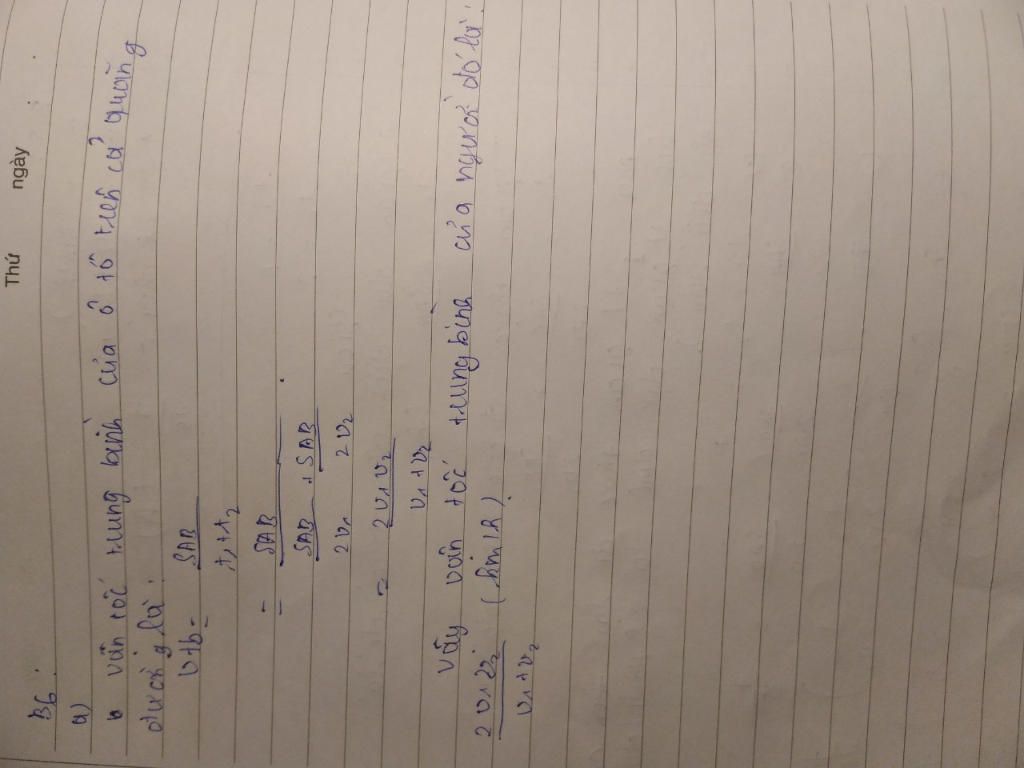 Thứ ngày
B6.
a)
vận tốc trung bình của ô tô trên cả quãng
đường là:
vtb = SAB
t1+t2
= SAB
SAB + SAB
2v1 2v2
= 2v1v2
v1+v2
vậy vận tốc trung bình của người đó là
2v1v2 (km/h)
v1+v2